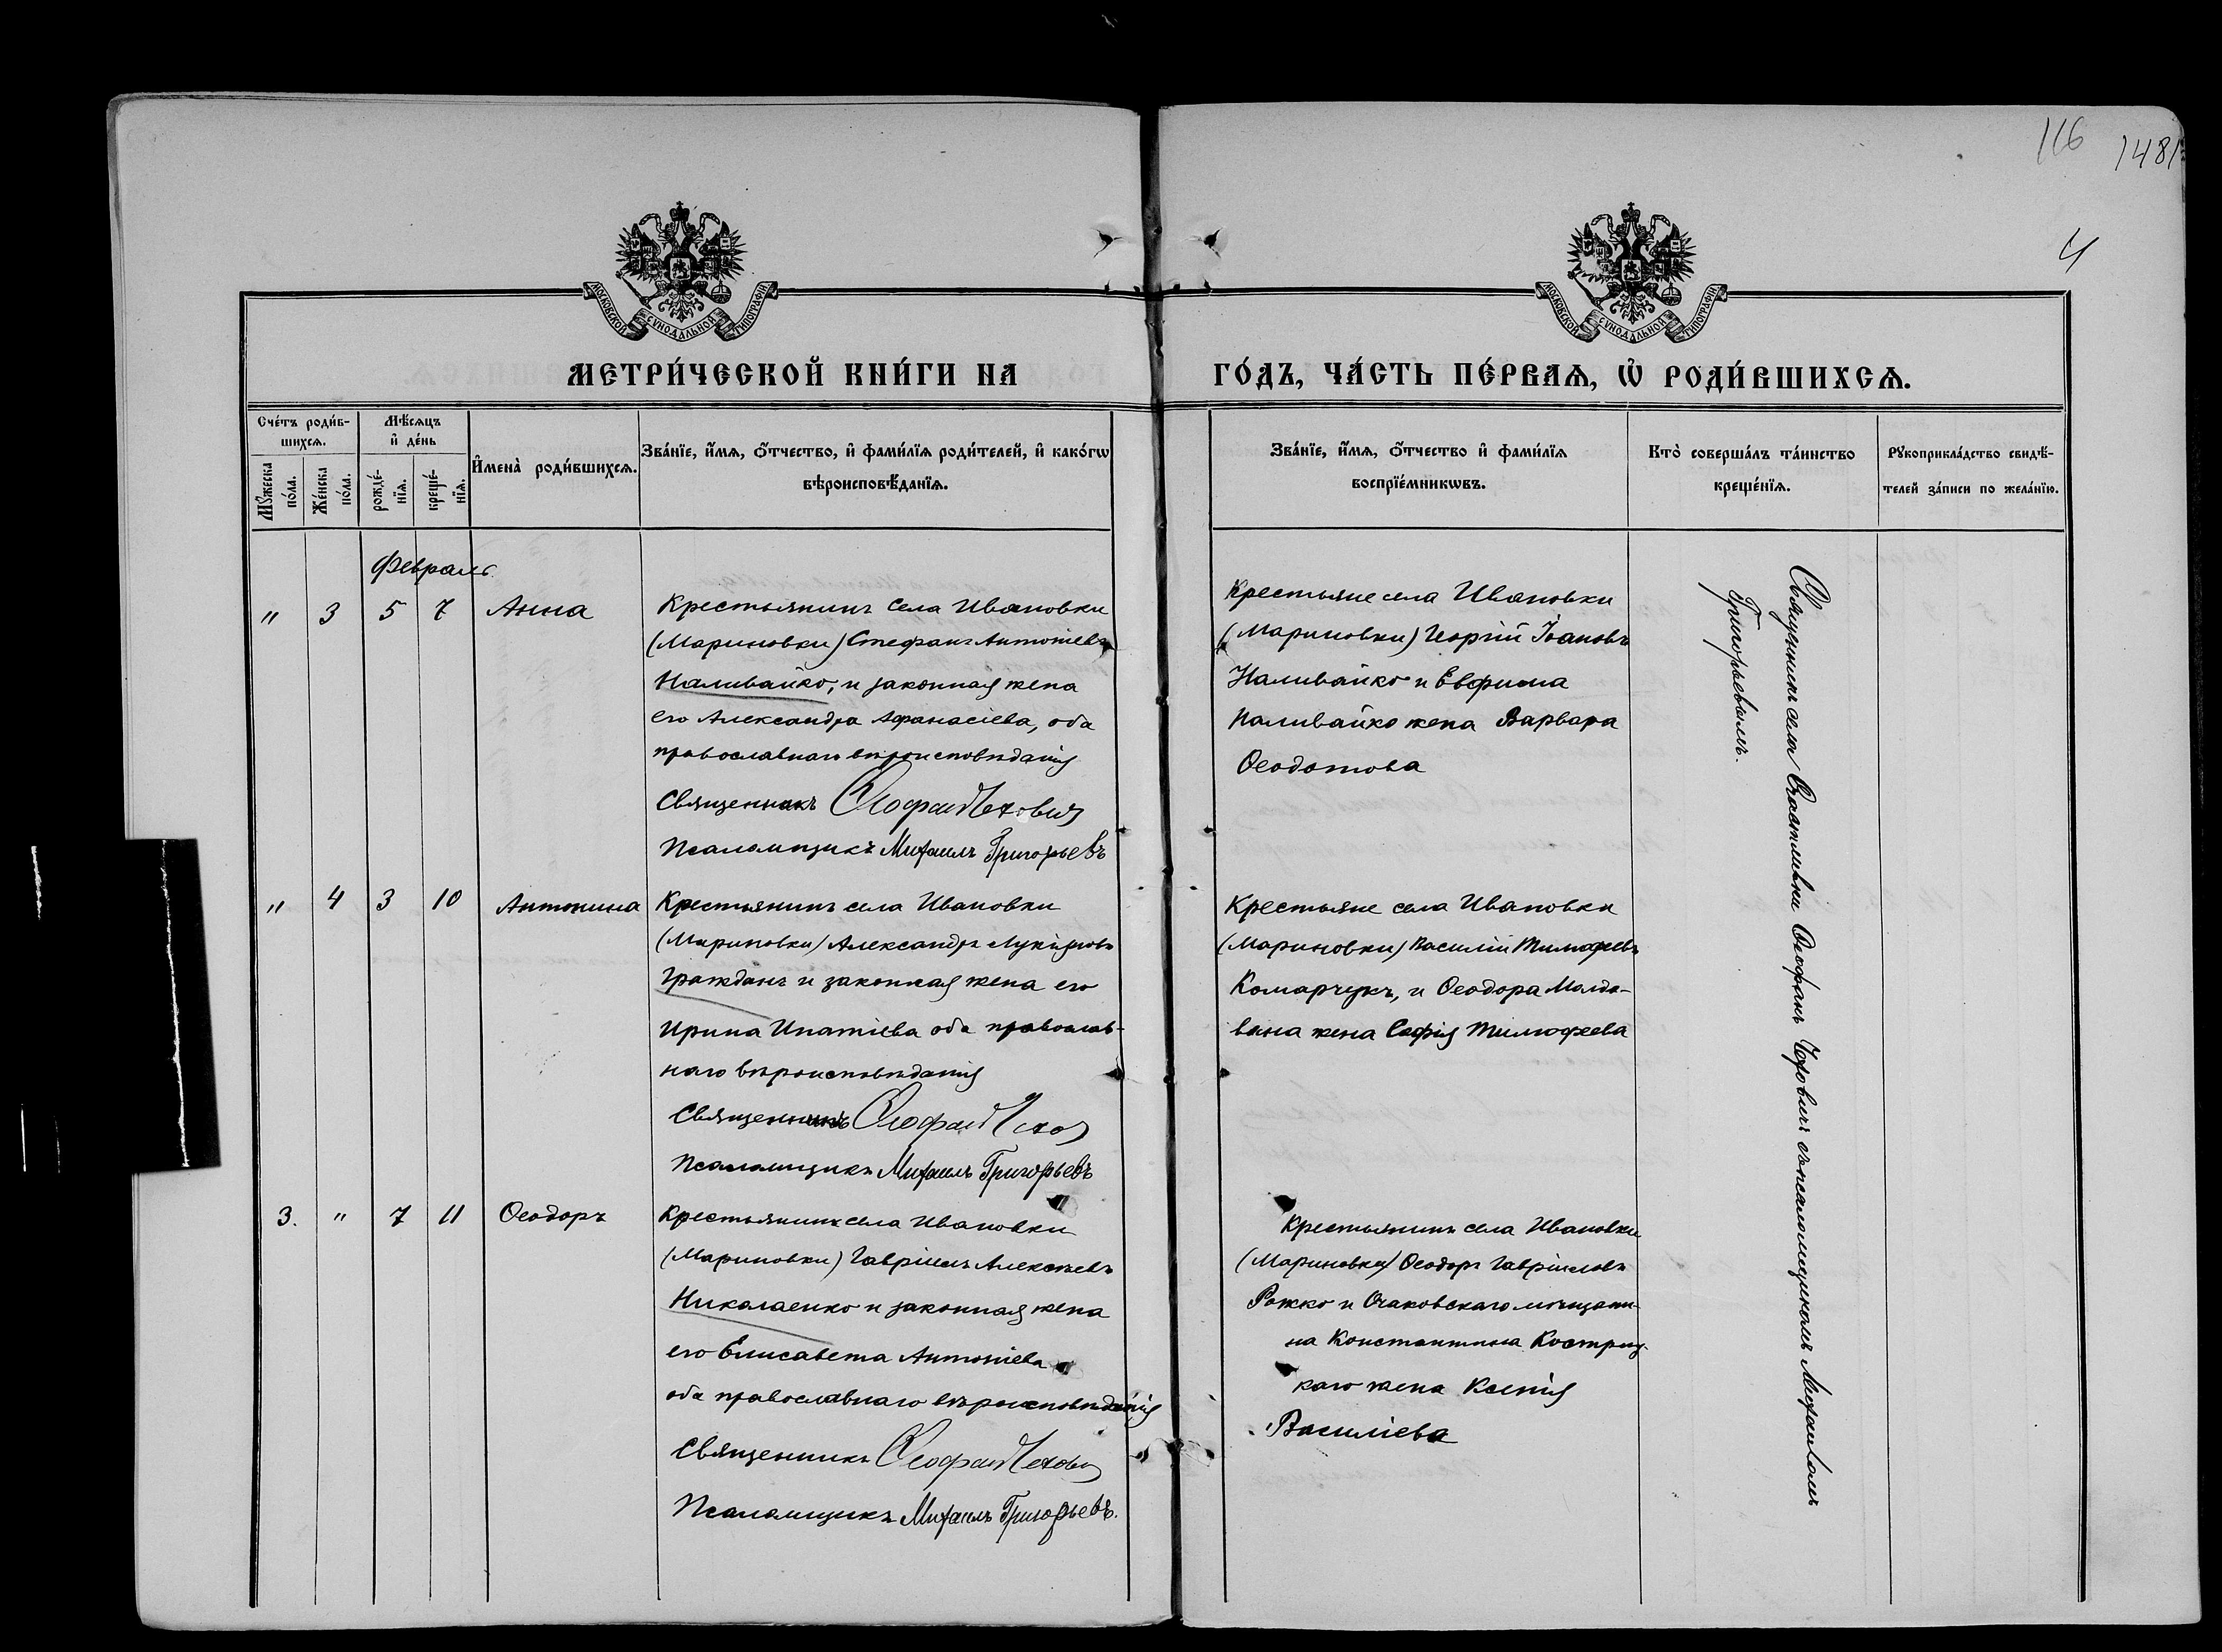 116 1481
4
МОСКОВСКОЙ СУНОДАЛЬНОЙ ТИПОГРАФІИ
МОСКОВСКОЙ СУНОДАЛЬНОЙ ТИПОГРАФІИ
МЕТРИ́ЧЕСКОЙ КНИ́ГИ НА
ГО́ДЪ, ЧА́СТЬ ПЕ́РВАѦ, Ѡ҆ РОДИ́ВШИХСѦ.
Сче́тъ роди́в-
шихсѧ.
Мꙋ́жеска
по́ла.
Же́нска
по́ла.
Мѣ́сѧцъ
и҆ де́нь
рожде́-
нїѧ.
креще́-
нїѧ.
И҆мена̀ роди́вшихсѧ.
Зва́нїе, и҆́мѧ, ѻ҆́тчество, и҆ фами́лїѧ роди́телей, и҆ како́гѡ
вѣроисповѣ́данїѧ.
Зва́нїе, и҆́мѧ, ѻ҆́тчество и҆ фами́лїѧ
воспрїе́мникѡвъ.
Кто̀ соверша́лъ та́инство
креще́нїѧ.
Рꙋкоприкла́дство свидѣ́-
телей за́писи по жела́нїю.
Февраль
" 3 5 7 Анна
Крестьянинъ села Ивановки
(Мариновки) Стефанъ Антоніевъ
Наливайко, и законная жена
его Александра Афанасіева, оба
православнаго вѣроисповѣданія
Священникъ Ѳеофанъ Чехович
Псаломщикъ Михаилъ Григорьевъ
Крестьяне села Ивановки
(Мариновки) Георгій Іоановъ
Наливайко и Евфима
Наливайко жена Варвара
Ѳеодотова
Священникъ села Счастливки Ѳеофанъ Чеховичъ съ псаломщикомъ Михаиломъ
Григорьевымъ.
" 4 3 10 Антонина
Крестьянинъ села Ивановки
(Мариновки) Александръ Лукіановъ
Гражданъ и законная жена его
Ирина Ипатіева оба православ-
наго вѣроисповѣданія
Священникъ Ѳеофанъ Чехо
Псаломщикъ Михаилъ Григорьевъ
Крестьяне села Ивановки
(Мариновки) Василій Тимофеевъ
Комарчукъ, и Ѳеодора Молдо-
вана жена Софія Тимофеева
3. " 7 11 Ѳеодоръ
Крестьянинъ села Ивановки
(Мариновки) Гавріилъ Алексѣевъ
Николаенко и законная жена
его Елисавета Антоніева
оба православнаго вѣроисповѣданія
Священникъ Ѳеофанъ Чехови
Псаломщикъ Михаилъ Григорьевъ.
Крестьянинъ села Ивановки
(Мариновки) Ѳеодоръ Гавріиловъ
Рожко и Очаковскаго мѣщани-
на Константина Костриц-
каго жена Ксенія
Василіева